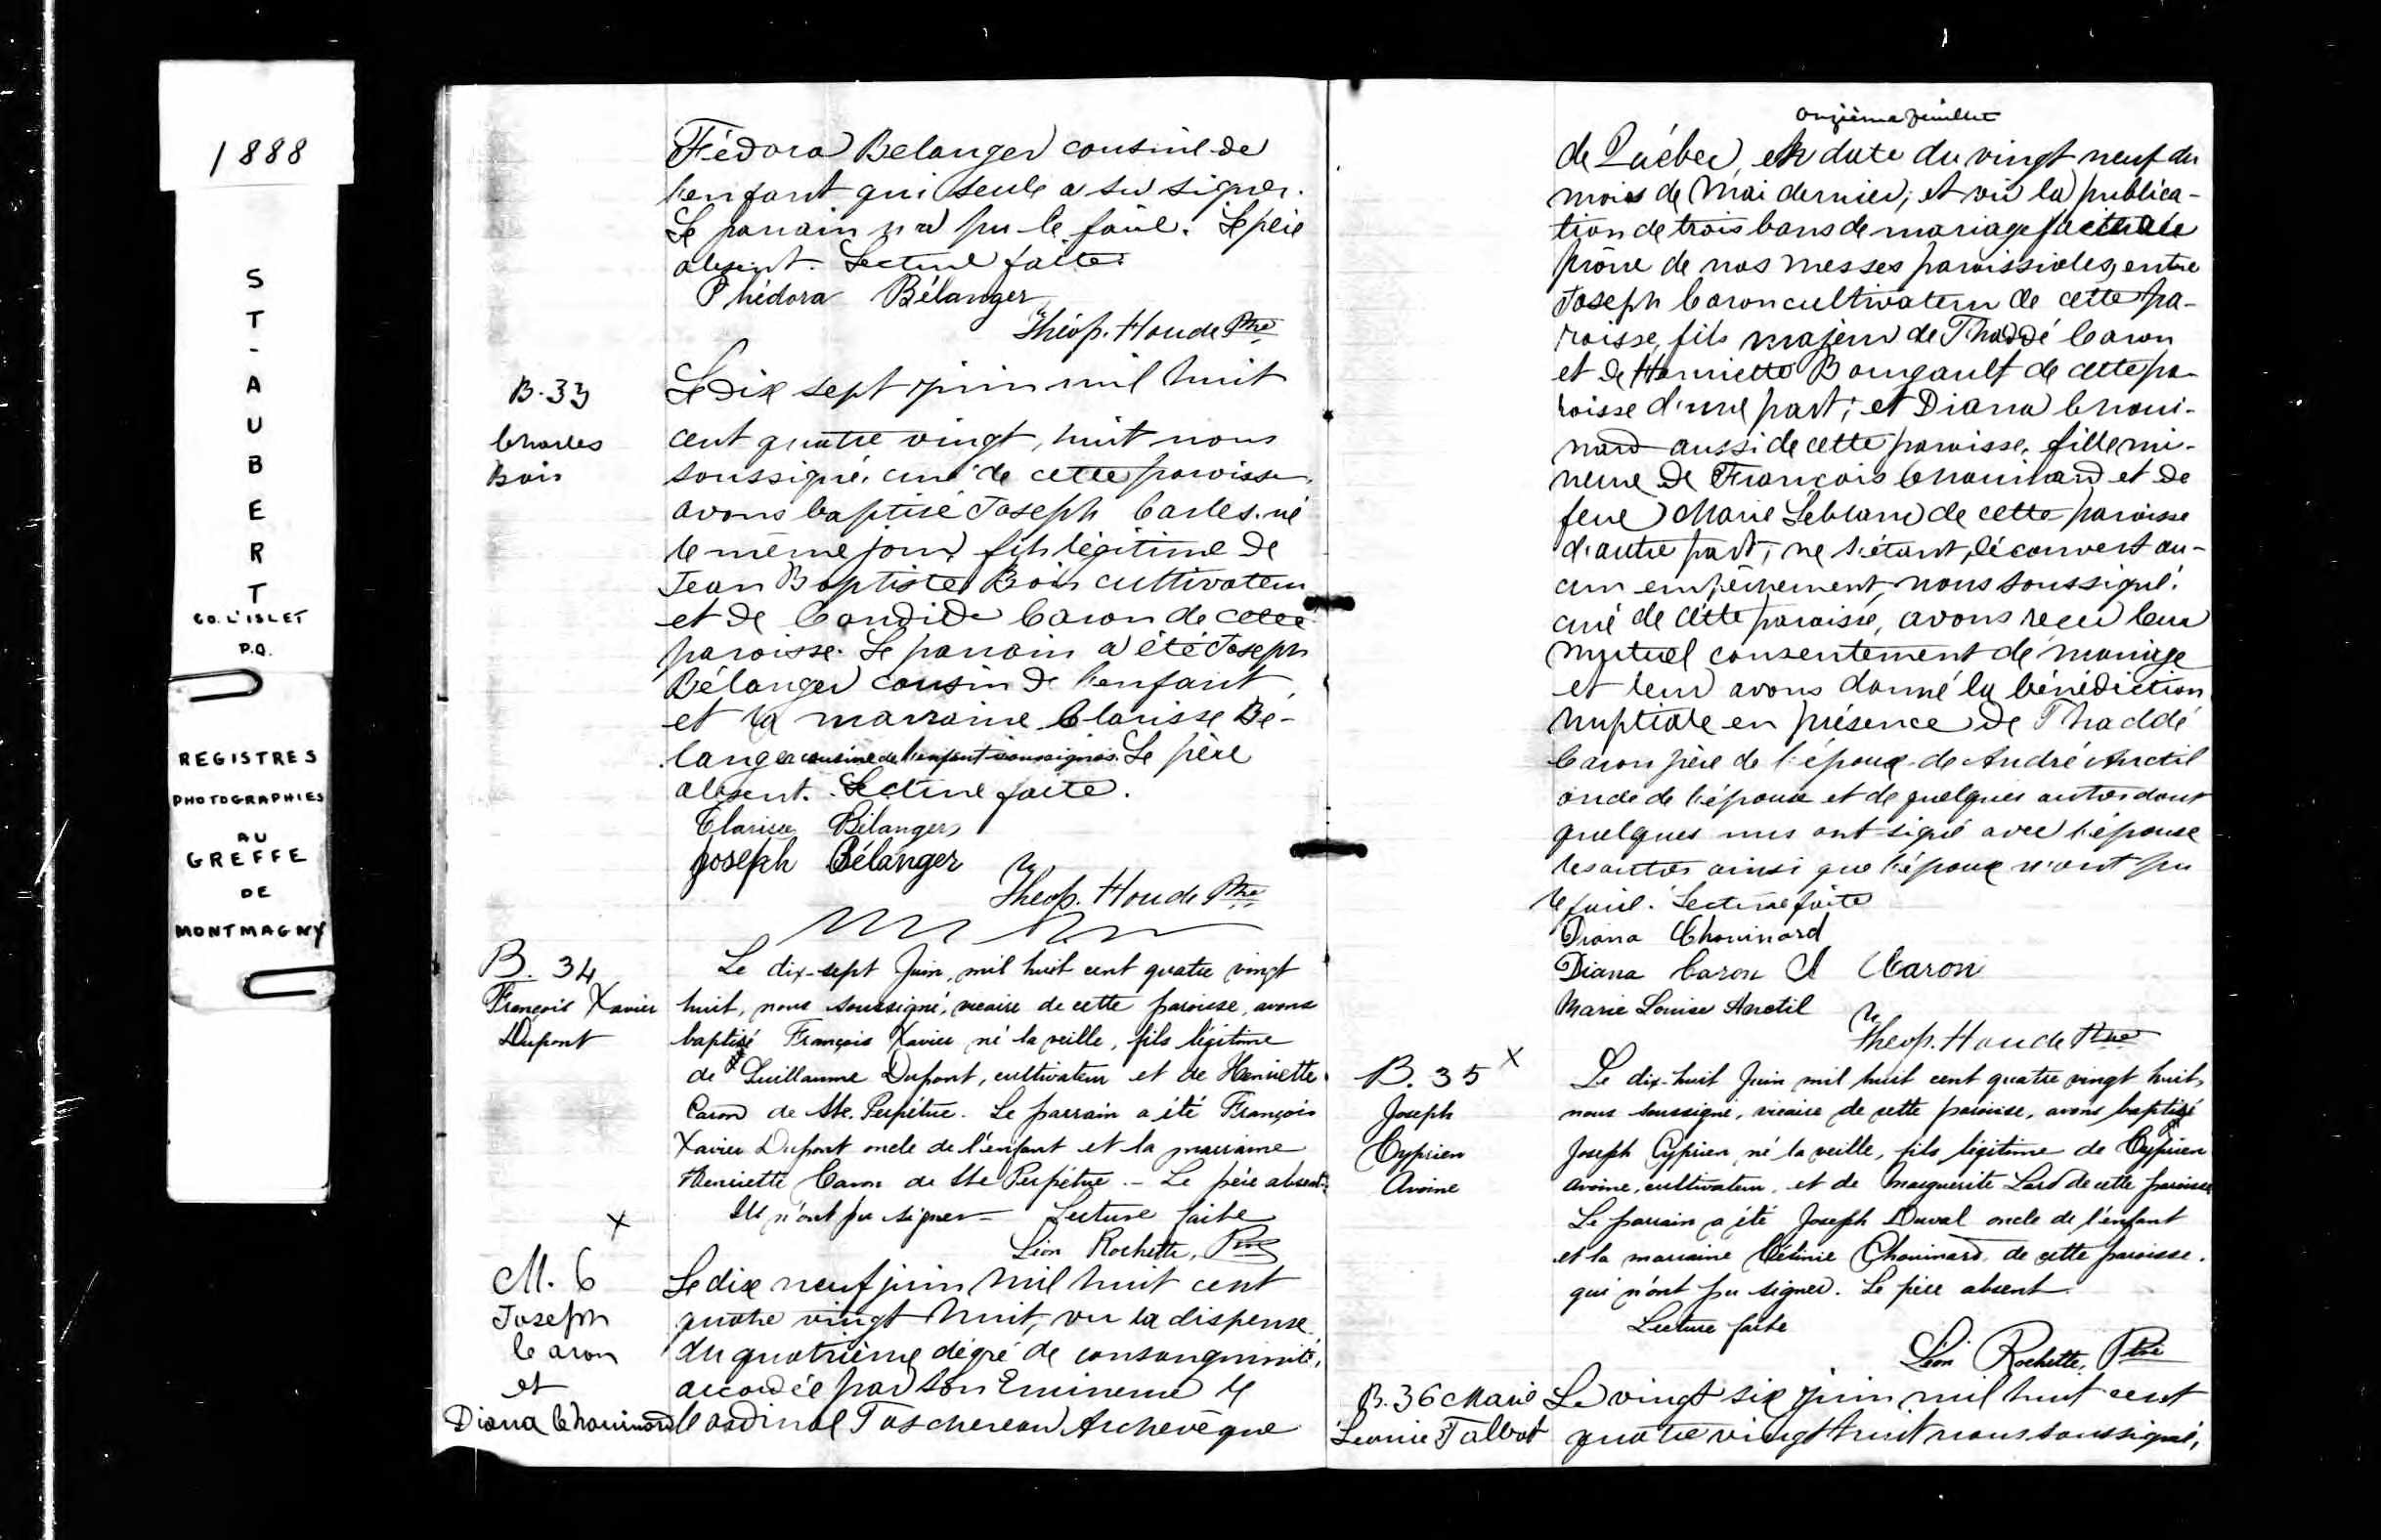 1888
S
T
-
A
U
B
E
R
T
CO. L'ISLET
P.Q.
REGISTRES
PHOTOGRAPHIES
AU
GREFFE
DE
MONTMAGNY
Fédora Belanger cousine de
l'enfant qui seule a su signer.
Le parrain n'a pu le faire. Le père
absent. Lecture faite.
Phédora Bélanger
Théop. Houde Ptre
B. 33
Charles
Bois
Le dix sept juin mil huit
cent quatre vingt, huit nous
soussigné, curé de cette paroisse,
avons baptisé Joseph Carles. né
le même jour, fils légitime de
Jean Baptiste Bois cultivateur
et de Candide Caron de cette
paroisse. Le parrain a été Joseph
Bélanger cousin de l'enfant,
et la marraine Clarisse Bé-
langer cousine de l'enfant soussignés. Le père
absent. Lecture faite.
Clarisse Bélanger
Joseph Bélanger
Theop. Houde Ptre
B. 34
François Xavier
Dupont
Le dix-sept Juin, mil huit cent quatre vingt
huit, nous soussigné, vicaire de cette paroisse, avons
baptisé François Xavier né la veille, fils légitime
de Guillaume Dupont, cultivateur et de Henriette
Caron de Ste. Perpétue. Le parrain a été François
Xavier Dupont oncle de l'enfant et la marraine
Henriette Caron de Ste Perpétue. - Le père absent.
Ils n'ont pu signer - Lecture faite
Léon Rochette, Ptre
X
M. 6
Joseph
Caron
et
Diana Chouinard
Le dix neuf juin mil huit cent
quatre vingt huit, vu la dispense
du quatrième dégré de consanguinité,
accordée par Son Eminence le
Cardinal Taschereau Archevêque
onzième feuillet
de Québec, en date du vingt neuf du
mois de Mai dernier; et vu la publica-
tion de trois bans de mariage faite au
prône de nos messes paroissiales, entre
Joseph Caron cultivateur de cette pa-
roisse, fils majeur de Thaddé Caron
et de Henriette Bourgault de cette pa-
roisse d'une part; et Diana Choui-
nard aussi de cette paroisse, fille mi-
neure de François Chouinard et de
feue Marie Leblanc de cette paroisse
d'autre part; ne s'étant découvert au-
cun empêchement, nous soussigné,
curé de cette paroisse, avons reçu leur
mutuel consentement de mariage
et leur avons donné la bénédiction
nuptiale en présence de Thaddé
Caron père de l'époux de André Anctil
oncle de l'épouse et de quelques autres dont
quelques uns ont signé avec l'épouse
les autres ainsi que l'époux n'ont pu
le faire. Lecture faite
Diana Chouinard
Diana Caron A Caron
Marie Louise Anctil
Theop. Houde Ptre
B. 35 X
Joseph
Cyprien
Avoine
Le dix-huit Juin mil huit cent quatre vingt huit,
nous soussigné, vicaire de cette paroisse, avons baptisé
Joseph Cyprien, né la veille, fils légitime de Cyprien
Avoine, cultivateur, et de Marguerite Lord de cette paroisse
Le parrain a été Joseph Duval oncle de l'enfant
et la marraine Célinie Chouinard, de cette paroisse.
qui n'ont pu signer. Le père absent.
Lecture faite
Léon Rochette, Ptre
B. 36 Marie
Léonie Talbot
Le vingt six juin mil huit cent
quatre vingt huit nous soussigné,